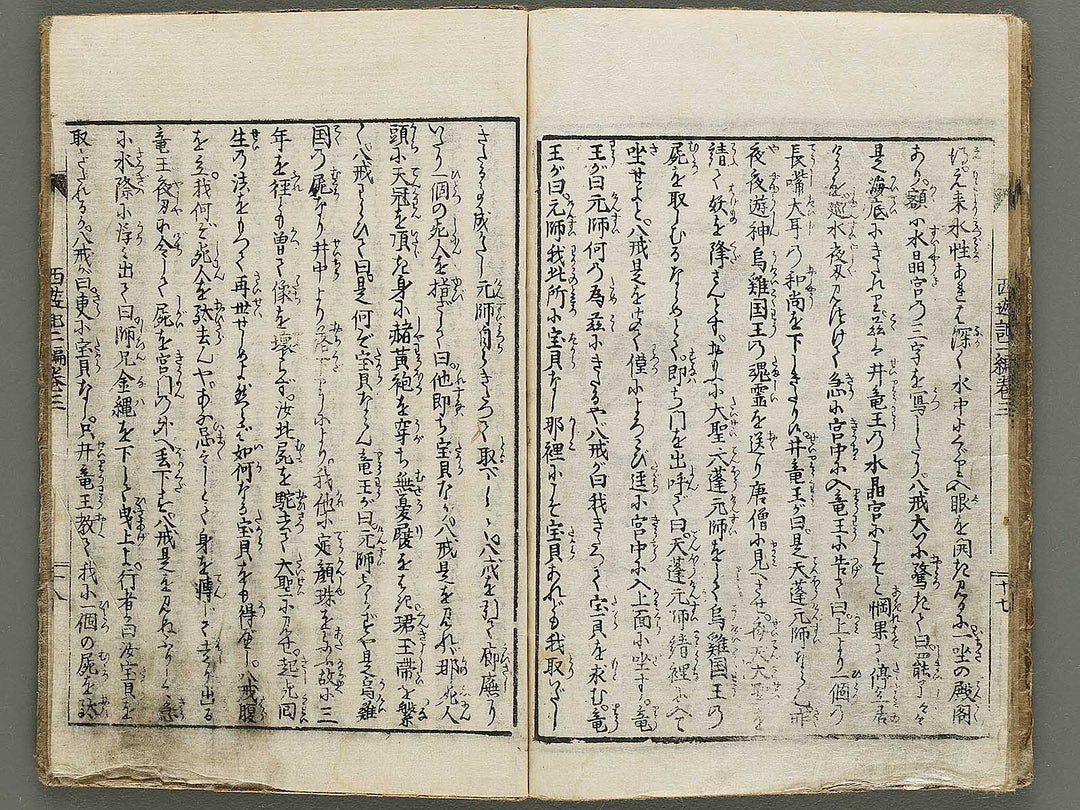 元来水性あれば深く水中にくゞり入眼を開き見るに一坐の殿閣
あり額に水晶宮の三字を寫したり八戒大に驚きて曰罷了々々
是海底にきたれり茲は井竜王の水晶宮にして惘果て停在居
たるを巡水夜叉見つけて急に宮中に入竜王に告て曰上より一個の
長嘴大耳の和尚を下しきたれり井竜王が曰是天蓬元師ならん昨
夜夜遊神烏雞国王の魂霊を送り唐僧に見へさせ斉天大聖を
請て妖を降さんとす大聖天蓬元師をして烏雞国王の
屍を取しむるならめとて即ち門を出呼て曰天蓬元師請裡に入て
坐せよと八戒是をきて僅によろこび廷に宮中に入上面に坐す竜
王が曰元師何の為茲にきたるや八戒が曰我きたつて宝貝を求む竜
王が曰元師我此所に宝貝なし那裡にこそ宝貝あれども我取いだし
きたる事成がたし元師自らきたつて取べしと八戒を引て廊廡に
いたり一個の死人を指さして曰他即ち宝貝なり八戒是を見れば那死人
頭に天冠を頂き身に赭黄袍を穿ち無憂履をはき珺玉帯を繋
く八戒わらひて曰是何ぞ宝貝ならん竜王が曰元師しらずや是烏雞
国の屍なり井中より落下りしにより我他に定顔珠を与ふ故に三
年を経ても曽て像を壊らず汝此屍を駝去て大聖に見せ起死回
生の法をもつて再世せしめよ然らば如何なる宝貝をも得べし八戒腹
を立我何ぞ死人を駄去んやあな忌々しとて身を轉じて走り出る
竜王夜叉に令して屍を宮門の外へ丢下す八戒是を見ねふりして急
に水際に浮と出て曰師兄金縄を下して曳上よ行者が曰汝宝貝を
取きたれるか八戒が曰更に宝貝なし只井竜王教て我に一個の屍を駄
西遊記二編巻三
十七
西遊記二編巻三
十八